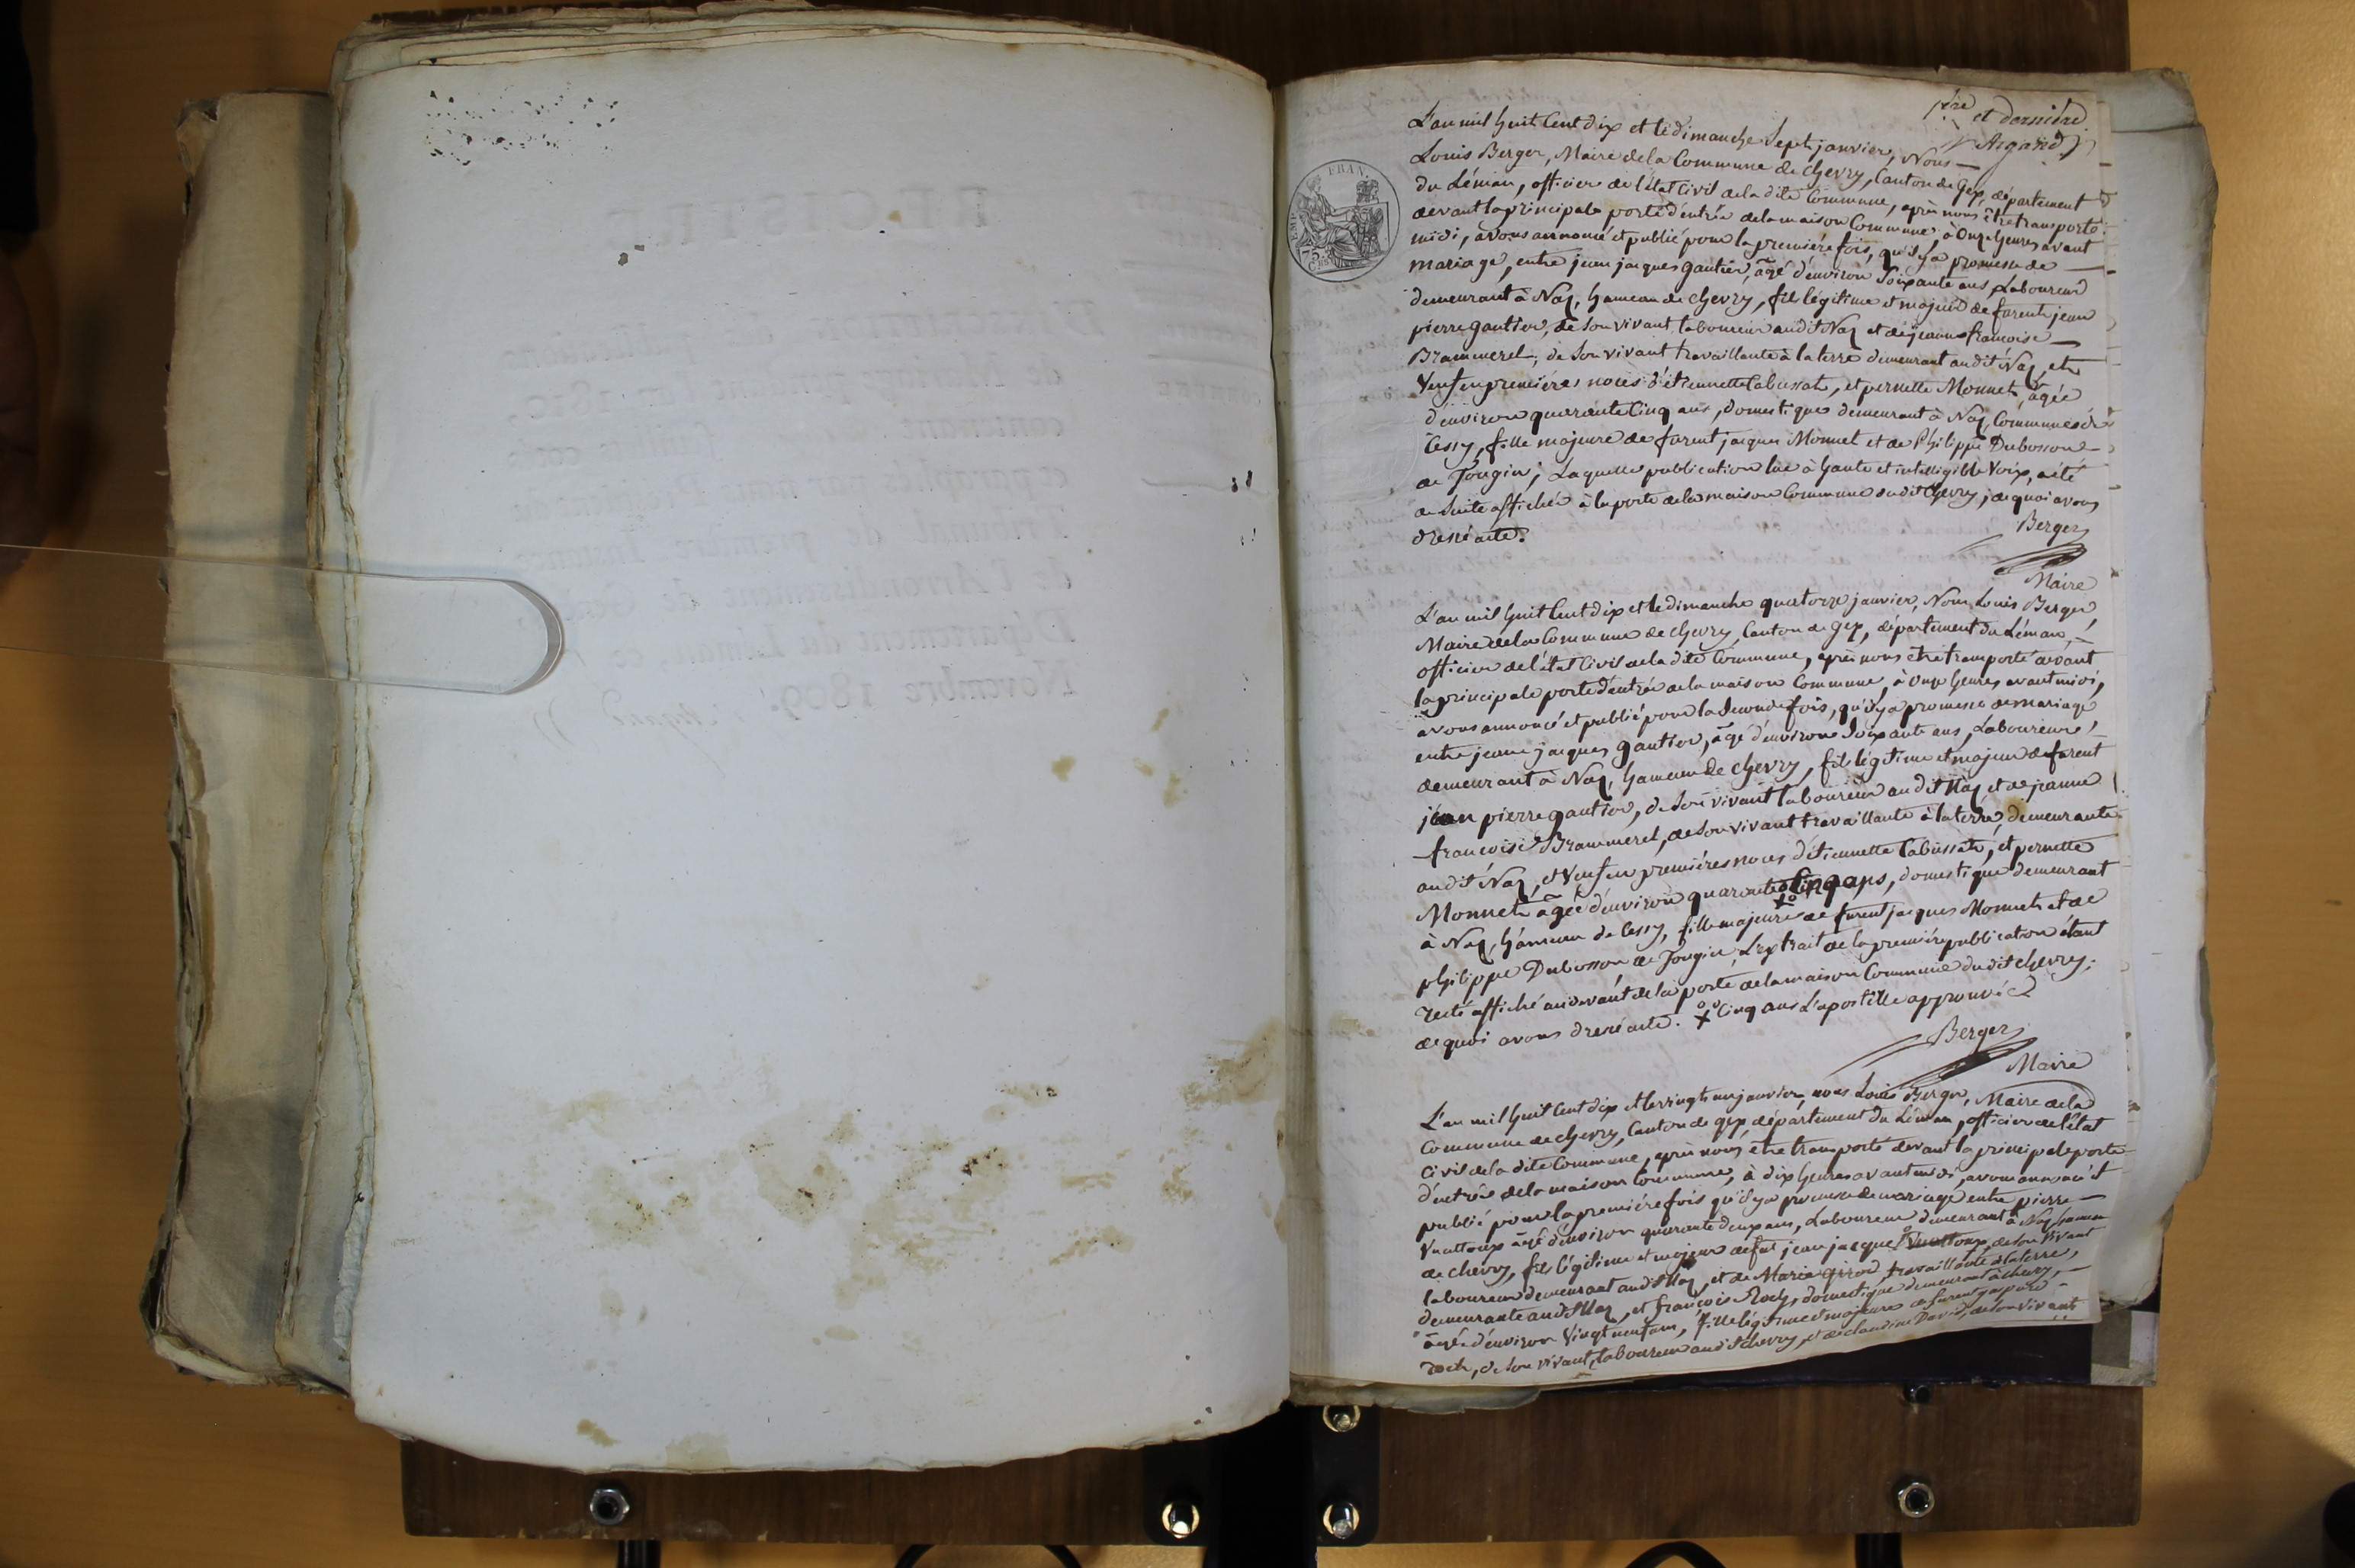 1ère et dernière
Argand
L'an mil huit cent dix et le dimanche Sept janvier, Nous
Louis Berger, Maire de la Commune de Chevry, Canton de Gex, département
du Léman, officier de l'état Civil de la dite Commune, après nous être transporté
devant la principale porte d'entrée de la maison Commune, à Onze heures avant
midi, avons annoncé et publié pour la première fois, qu'il y a promesse de
mariage, entre jean jacques gautier, âgé d'environ Soixante ans, Laboureur
demeurant à Naz, hameau de chevry, fils légitime et majeur de furent jean
pierre gautier, de Son vivant, laboureur audit Naz et de jeanne françoise
Brammerel, de Son vivant travaillante à la terre demeurant audit Naz, et
Veuf en premières noces d'étiennette Cabussat, et pernette Monnet, âgée
d'environ quarante Cinq ans, domestique demeurant à Naz, Commune de
Cessy, fille majeure de furent jacques Monnet et de Philippe Dubosson
de Jougin; Laquelle publication lue à haute et intelligible Voix, a été
de Suite affichée à la porte de la maison Commune dudit Chevry, de quoi avons
dressé acte.
Berger
Maire
L'an mil huit Cent dix et le dimanche quatorze janvier, Nous Louis Berger,
Maire de la Commune de chevry, Canton de gex, département du Léman,
officier de l'état Civil de la dite Commune, après nous être transporté devant
la principale porte d'entrée de la maison Commune, à Onze heures avant midi,
avons annoncé et publié pour la Seconde fois, qu'il y a promesse de mariage
entre jean jacques gautier, âgé d'environ Soixante ans, Laboureur,
demeurant à Naz, hameau de chevry, fils légitime et majeur de furent
jean pierre gautier, de Son vivant laboureur audit Naz et de jeanne
françoise Brammerel, de Son vivant travaillante à la terre, demeurante
audit Naz, et Veuf en premières noces d'étiennette Cabussat, et pernette
Monnet âgée d'environ quarante Cinq ans, domestique demeurant
à Naz, hameau de Cessy, fille majeure de furent jacques Monnet et de
philippe Dubosson de Jougin, L'extrait de la première publication étant
resté affiché au devant de la porte de la maison Commune dudit chevry;
de quoi avons dressé acte. X Cinq ans L'apostille approuvée
Berger
Maire
L'an mil huit Cent dix et le vingt un janvier, nous Louis Berger, Maire de la
Commune de chevry, Canton de gex, département du Léman, officier de l'état
Civil de la dite Commune, après nous être transporté devant la principale porte
d'entrée de la maison Commune, à dix heures avant midi, avons annoncé et
publié pour la première fois qu'il y a promesse de mariage entre pierre
Vuattoux âgé d'environ quarante deux ans, Laboureur demeurant à Naz, hameau
de chevry, fils légitime et majeur de fut jean jacque Vuattoux, de son Vivant
laboureur demeurant audit Naz, et de Marie girod travaillante à la terre,
demeurante audit Naz, et françoise Roch, domestique demeurant à chevry,
âgée d'environ Vingt neuf ans, fille légitime et majeure de furent gaspard
Roch, de Son vivant, laboureur audit chevry, et de claudine David, de son vivant
EMP. FRAN.
75.C